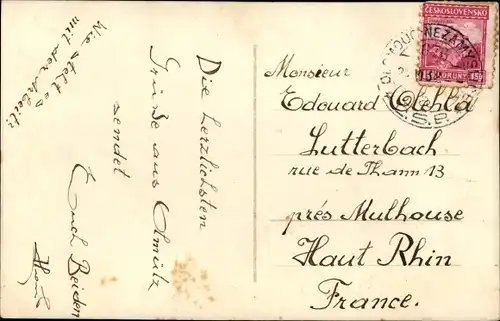 Wie steht es
mit der Arbeit?
Die herzlichsten
Grüße aus Olmütz
sendet
Euch Beiden
ČESKOSLOVENSKO
Monsieur
Edouard
Lutterbach
rue de Thann 13
prés Mulhouse
Haut Rhin
France.